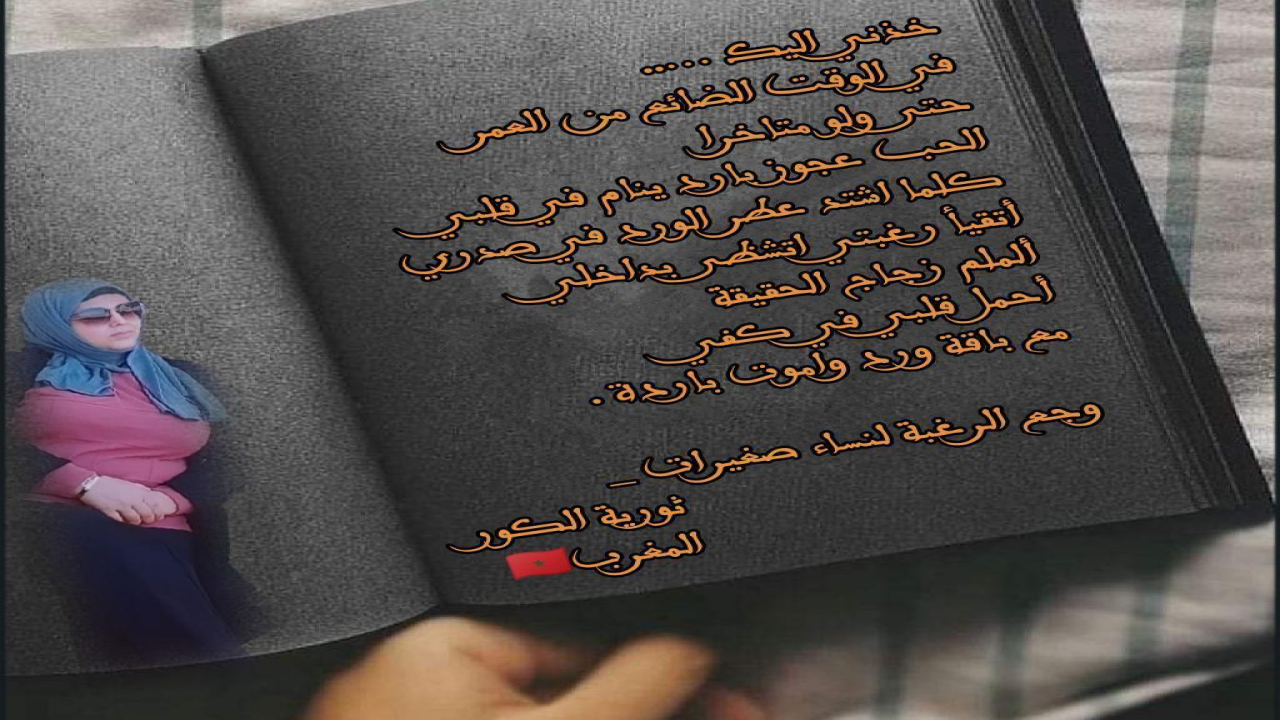 خذني اليك .....
في الوقت الضائع من العمر
حتى ولو متاخرا
الحب عجوز بارد ينام في قلبي
كلما اشتد عطر الورد في صدري
أتقيأ رغبتي اتشظى بداخلي
ألملم زجاج الحقيقة
أحمل قلبي في كفي
مع باقة ورد واموت باردة .
وجع الرغبة لنساء صغيرات _
ثورية الكور
المغرب🇲🇦